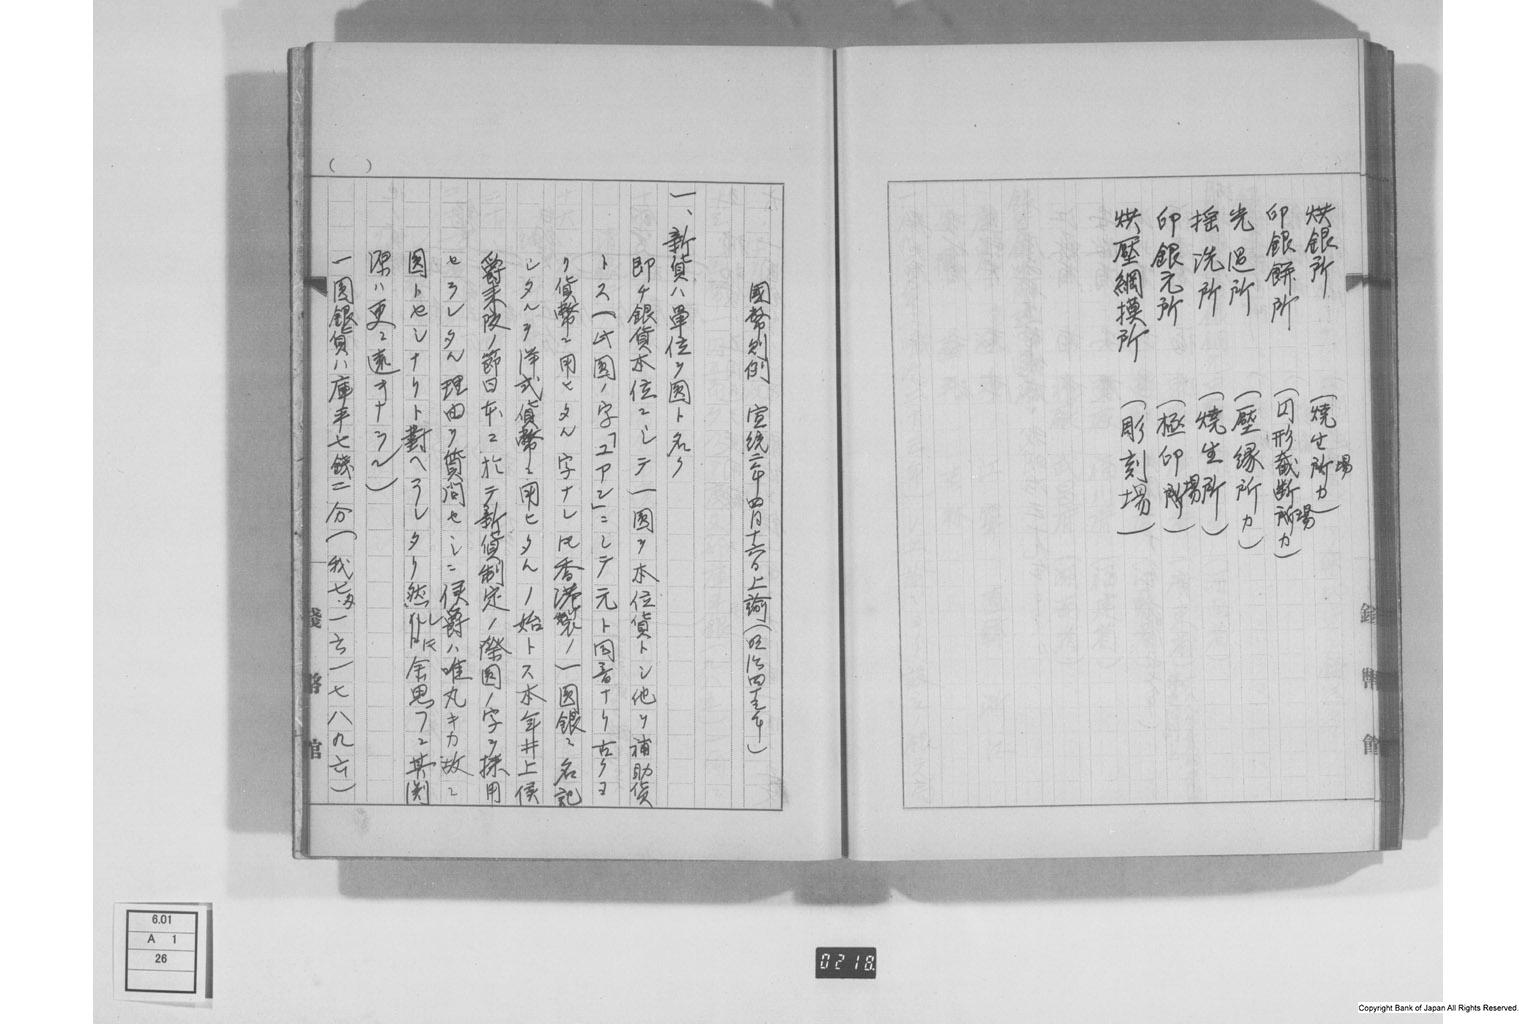 烘銀所 (燒生所カ)
場
印銀餅所 (円形截断所カ)
場
光邊所 (壓縁所カ)
搖洗所 (燒生所)
場
印銀元所 (極印所)
烘壓鋼模所 (彫刻場)
錢幣館
國幣則例 宣統二年四月十六日上諭(明治四十三年)
一、新貨ハ單位ヲ圓ト名ク
即チ銀貨本位ニシテ一圓ヲ本位貨トシ他ヲ補助貨
トス(此圓ノ字「ユアン」ニシテ元ト同音ナリ古クヨ
リ貨幣ニ用ヒタル字ナレ圧香港製ノ一圓銀ニ名記
シタルヲ洋式貨幣ニ用ヒタル ノ始トス本年井上侯
爵来阪ノ節日本ニ於テ新貨制定ノ際圓ノ字ヲ採用
セラレタル理由ヲ質問セシニ侯爵ハ唯丸キカ故ニ
圓トセシナリト對ヘラレタリ然レ圧余思フニ其淵
源ハ更ニ遠キナラン)
一圓銀貨ハ庫平七錢二分(我七匁一六一七八九六)
( )
錢幣館
6.01
A 1
26
0218
Copyright Bank of Japan All Rights Reserved.